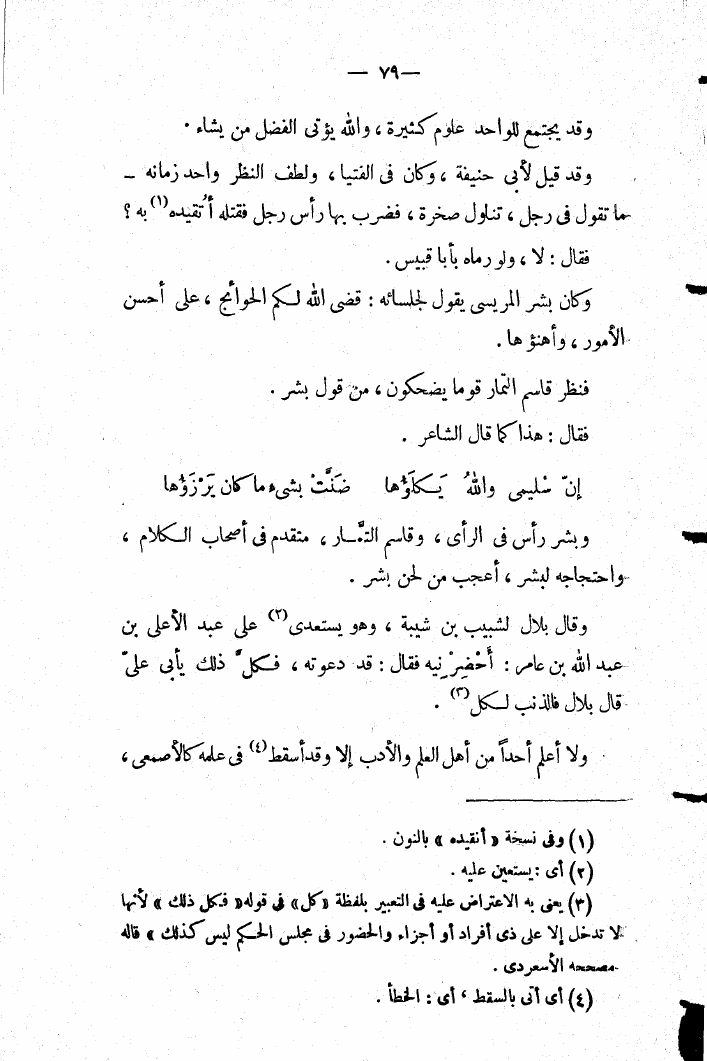 — ٧٩ —
وقد يجتمع للواحد علوم كثيرة ، والله يؤتى الفضل من يشاء .
وقد قيل لأبى حنيفة ، وكان فى الفتيا ، ولطف النظر واحد زمانه –
ما تقول فى رجل ، تناول صخرة ، فضرب بها رأس رجل فقتله أتُقيده(١) به ؟
فقال : لا ، ولو رماه بأبا قبيس .
وكان بشر المريسى يقول لجلسائه : قضى الله لكم الحوائج ، على أحسن
الأمور ، وأهنؤ ها .
فنظر قاسم التمار قوما يضحكون ، من قول بشر .
فقال : هذا كما قال الشاعر .
إنّ سْليمى واللهُ يَكلَؤُها ضَنَّتْ بشىء ما كان يَرْزَؤُها
وبشر رأس فى الرأى ، وقاسم التمَّار ، متقدم فى أصحاب الكلام ،
واحتجاجه لبشر ، أعجب من لحن بشر .
وقال بلال لشبيب بن شيبة ، وهو يستعدى(٢) على عبد الأعلى بن
عبد الله بن عامر : أَحْضِرْنِيه فقال : قد دعوته ، فكلَّ ذلك يأبى علىّ
قال بلال فالذنب لكل(٣) .
ولا أعلم أحداً من أهل العلم والأدب إلا وقد أسقط(٤) فى علمه كالأصمعى ،
(١) وفى نسخة « أنقيده » بالنون .
(٢) أى : يستعين عليه .
(٣) يعنى به الاعتراض عليه فى التعبير بلفظة «كل» فى قوله « فكل ذلك » لأنها
لا تدخل إلا على ذى أفراد أو أجزاء والحضور فى مجلس الحكم ليس كذلك » قاله
مصححه الأسعردى .
(٤) أى أتى بالسقط ، أى : الخطأ .